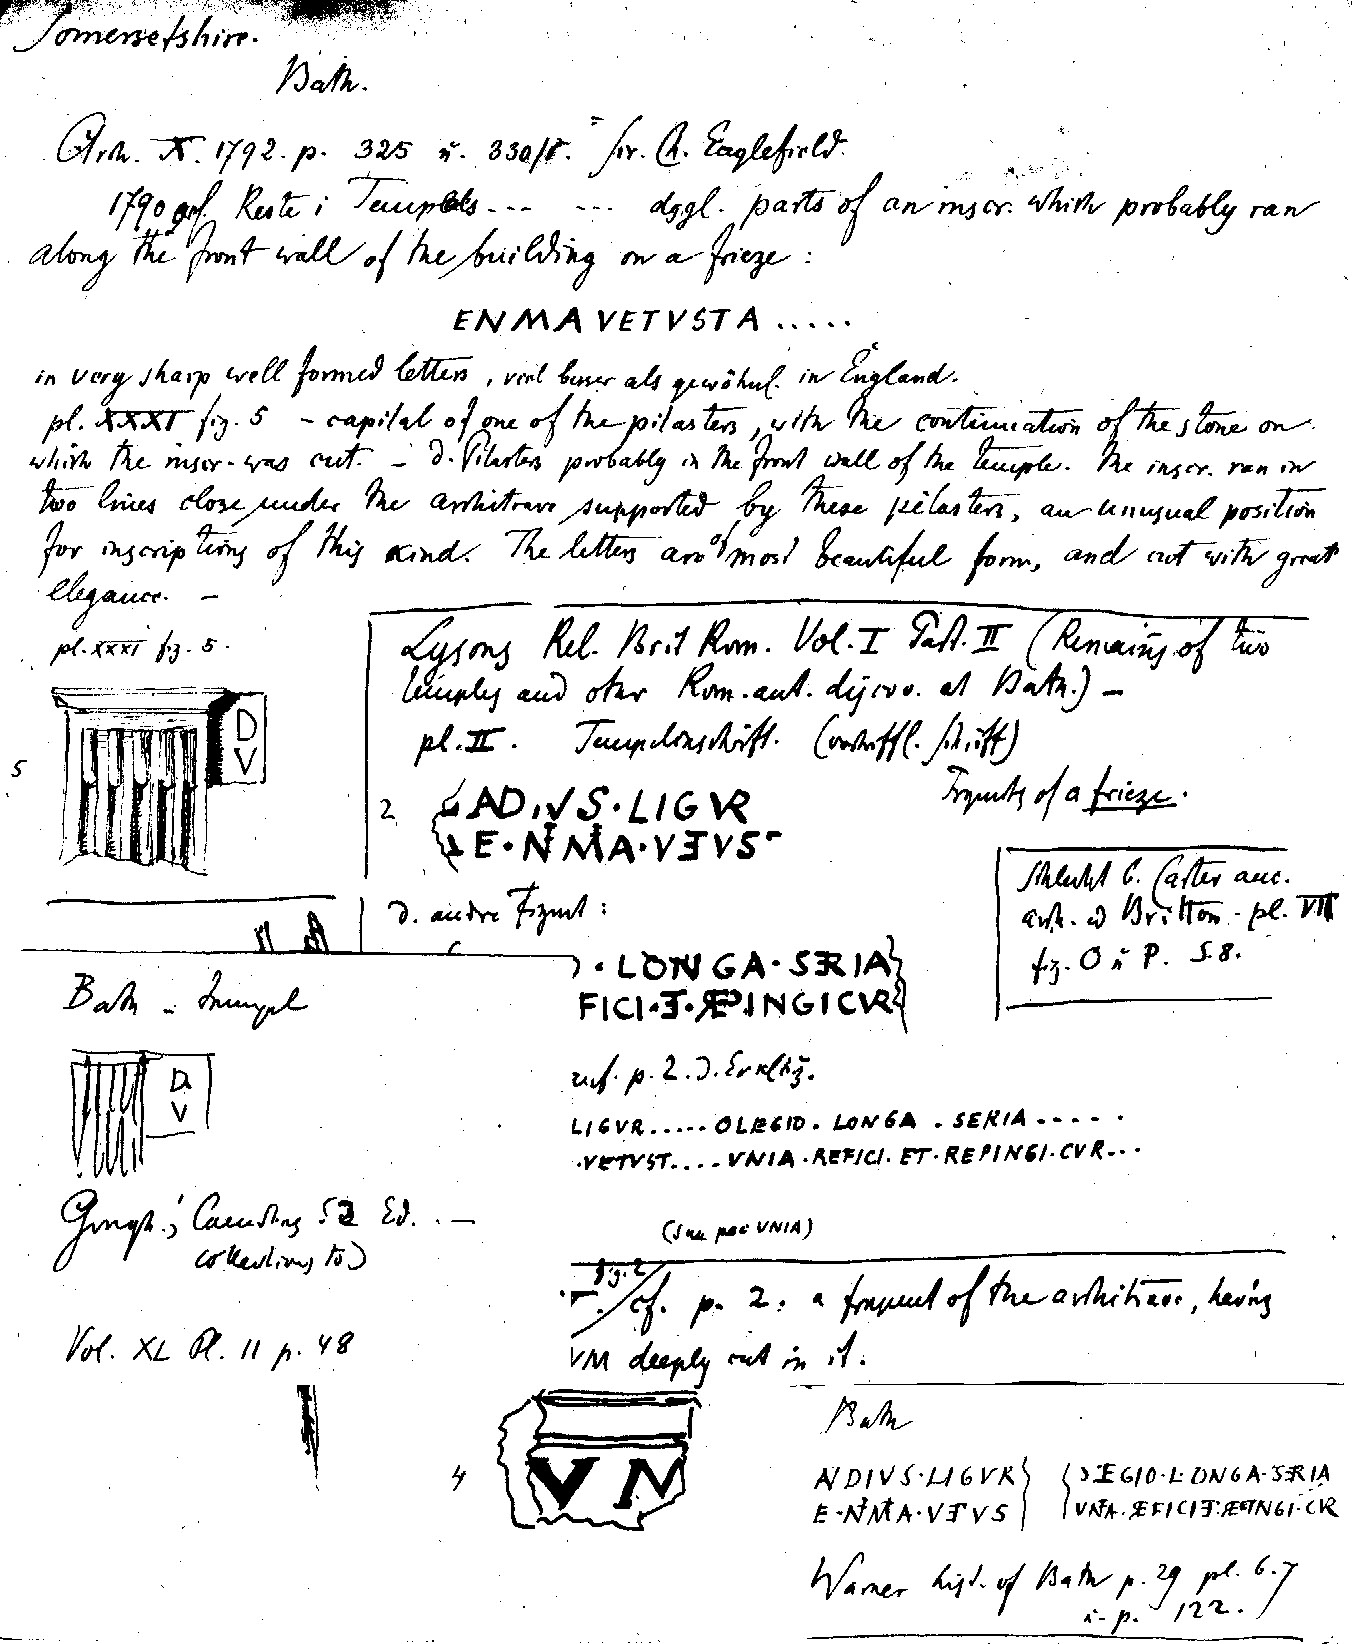 Somersetshire.
Bath.
Arch. X. 1792. p. 325 u. 330/1. Sir. H. Englefield.
1790 gef. Reste i Tempels --- --- dggl. parts of an inscr. which probably ran
along the front wall of the building on a frieze :
ENMAVETVSTA .....
in very sharp well formed letters, viel besser als gewöhnl. in England.
pl. XXXI fig. 5 - capital of one of the pilasters, with the continuation of the stone on
which the inscr. was cut. - d. Pilasters probably in the front wall of the temple. The inscr. ran in
two lines close under the architrave supported by these pilasters, an unusual position
for inscriptions of this kind. The letters are of most beautiful form, and cut with great
elegance. -
pl. XXXI fig. 5.
D
V
5
Lysons Rel. Brit Rom. Vol. I Part. II (Remains of two
temples and other Rom. ant. discov. at Bath.) -
pl. II. Tempelinschrift. (vortreffl. Schrift)
Fragmts of a frieze.
2 ADIVS·LIGVR
E·NMA·VETVS
d. andre Fragmt :
·LONGA·SERIA
FICI·ET·REPINGICVR
Schlecht b. Carter anc.
arch. ed Britton - pl. VII
fig. O u P. S. 8.
Bath - Tempel
D
V
p. 2. d.
LIGVR ..... OLEGIO . LONGA . SERIA .....
.VETVST .... VNIA . REFICI. ET. REPINGI. CVR...
Gough's Camdens 2 Ed. . -
collections to)
Vol. XL Pl. 11 p. 48
fig. 2
cf. p. 2: a fragment of the architrave, having
VM deeply cut in it.
4
VM
Bath
ADIVS·LIGVR
E·NMA·VETVS
EGIO·LONGA·SERIA
VNA·REFICI·ET·REPINGI·CVR
Warner hist. of Bath p. 29 pl. 6. 7
u. p. 122.